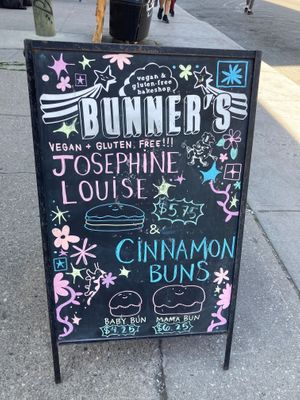 vegan &
gluten-free
bakeshop
BUNNER'S
VEGAN + GLUTEN FREE!!!
JOSEPHINE
LOUISE
$5.75
&
CINNAMON
BUNS
BABY BUN
$4.25
MAMA BUN
$6.25